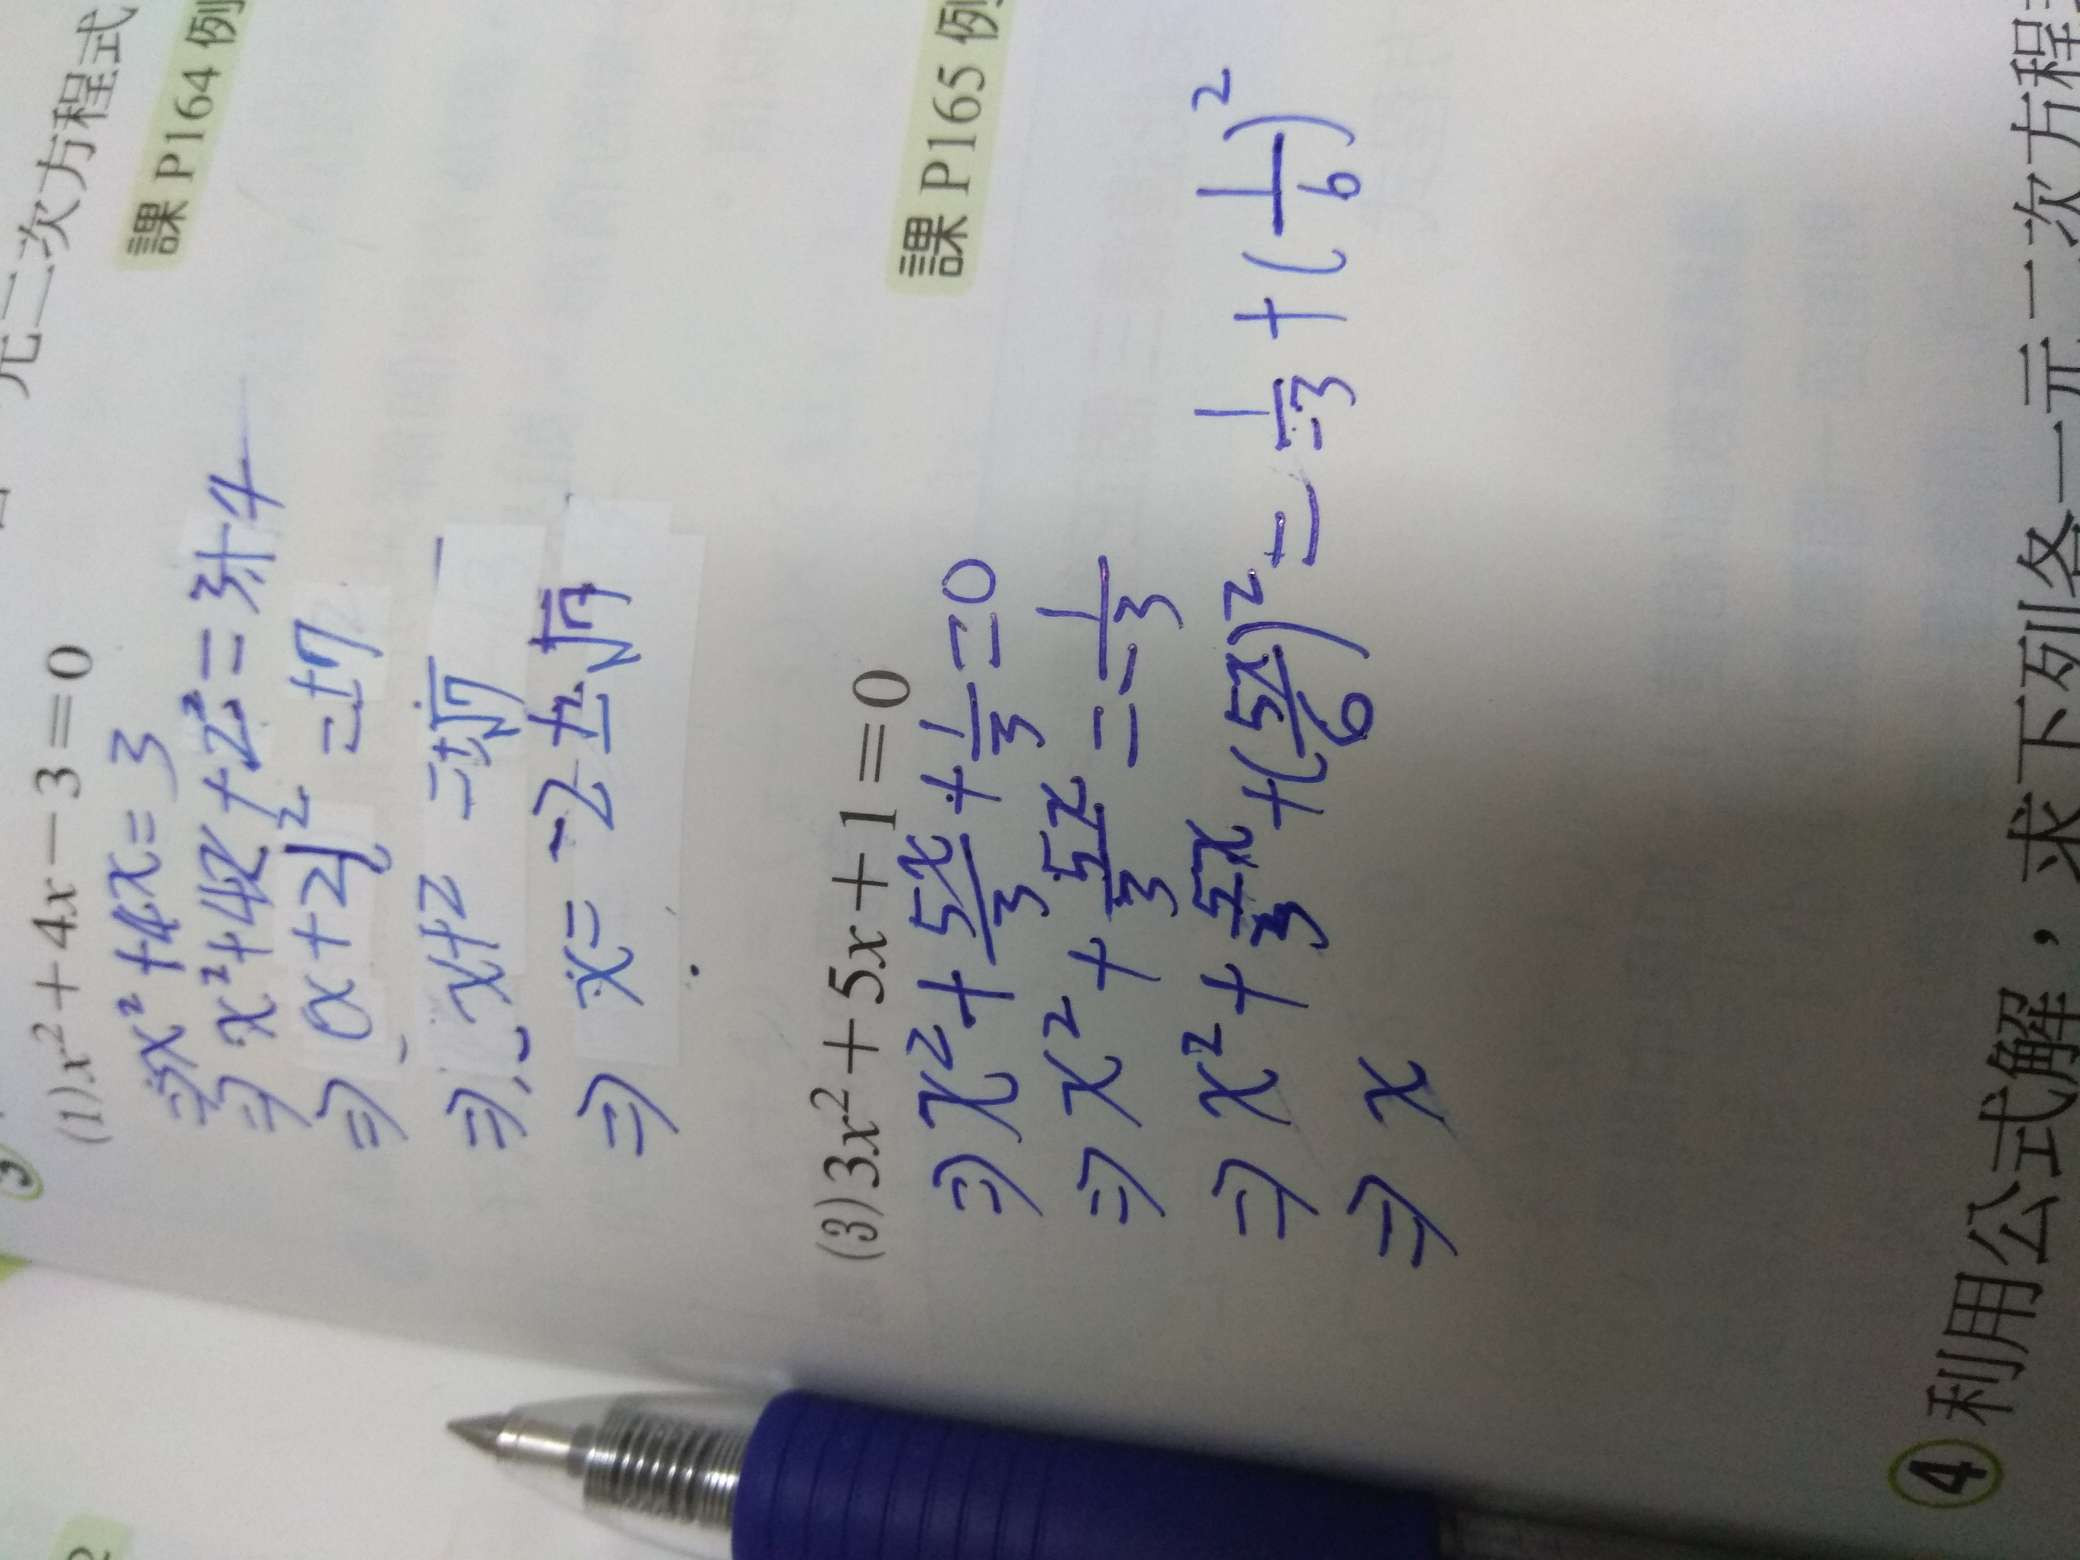 元二次方程式
課 P164 例
(1) x² + 4x − 3 = 0
⇒ x² + 4x = 3
⇒ x² + 4x + 2² = 3 + 4
⇒ (x + 2)² = ±7
⇒ x + 2 = ±√7
⇒ x = −2 ± √7
課 P165 例
(3) 3x² + 5x + 1 = 0
⇒ x² + 5x/3 + 1/3 = 0
⇒ x² + 5x/3 = −1/3
⇒ x² + 5x/3 + (5x/6)² = −1/3 + (1/6)²
⇒ x
④ 利用公式解，求下列各一元二次方程